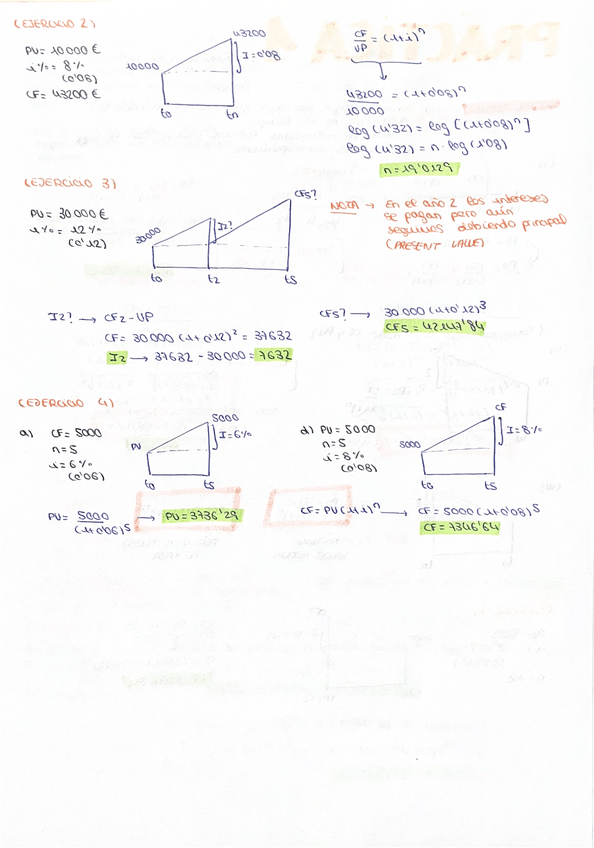 (EJERCICIO 2)
PU = 10000 €
i% = 8%
(0'08)
CF = 43200 €
43200
I = 0'08
10000
t0
tn
CF/VP = (1+i)^n
43200/10000 = (1+0'08)^n
log (4'32) = log [(1+0'08)^n]
log (4'32) = n · log (1'08)
n = 19'0129
(EJERCICIO 3)
PU = 30000 €
i% = 12%
(0'12)
30000
I2?
CF5?
t0
t2
t5
NOTA → En el año 2 los intereses
se pagan pero aún
seguimos debiendo principal
(PRESENT VALUE)
I2? → CF2 - VP
CF = 30000 (1+0'12)^2 = 37632
I2 → 37632 - 30000 = 7632
CF5? → 30000 (1+0'12)^3
CF5 = 42147'84
(EJERCICIO 4)
a) CF = 5000
n = 5
i = 6%
(0'06)
PU
5000
I = 6%
t0
t5
PU = 5000/(1+0'06)^5 → PU = 3736'29
d) PU = 5000
n = 5
i = 8%
(0'08)
5000
CF
I = 8%
t0
t5
CF = PU(1+i)^n → CF = 5000 (1+0'08)^5
CF = 7346'64